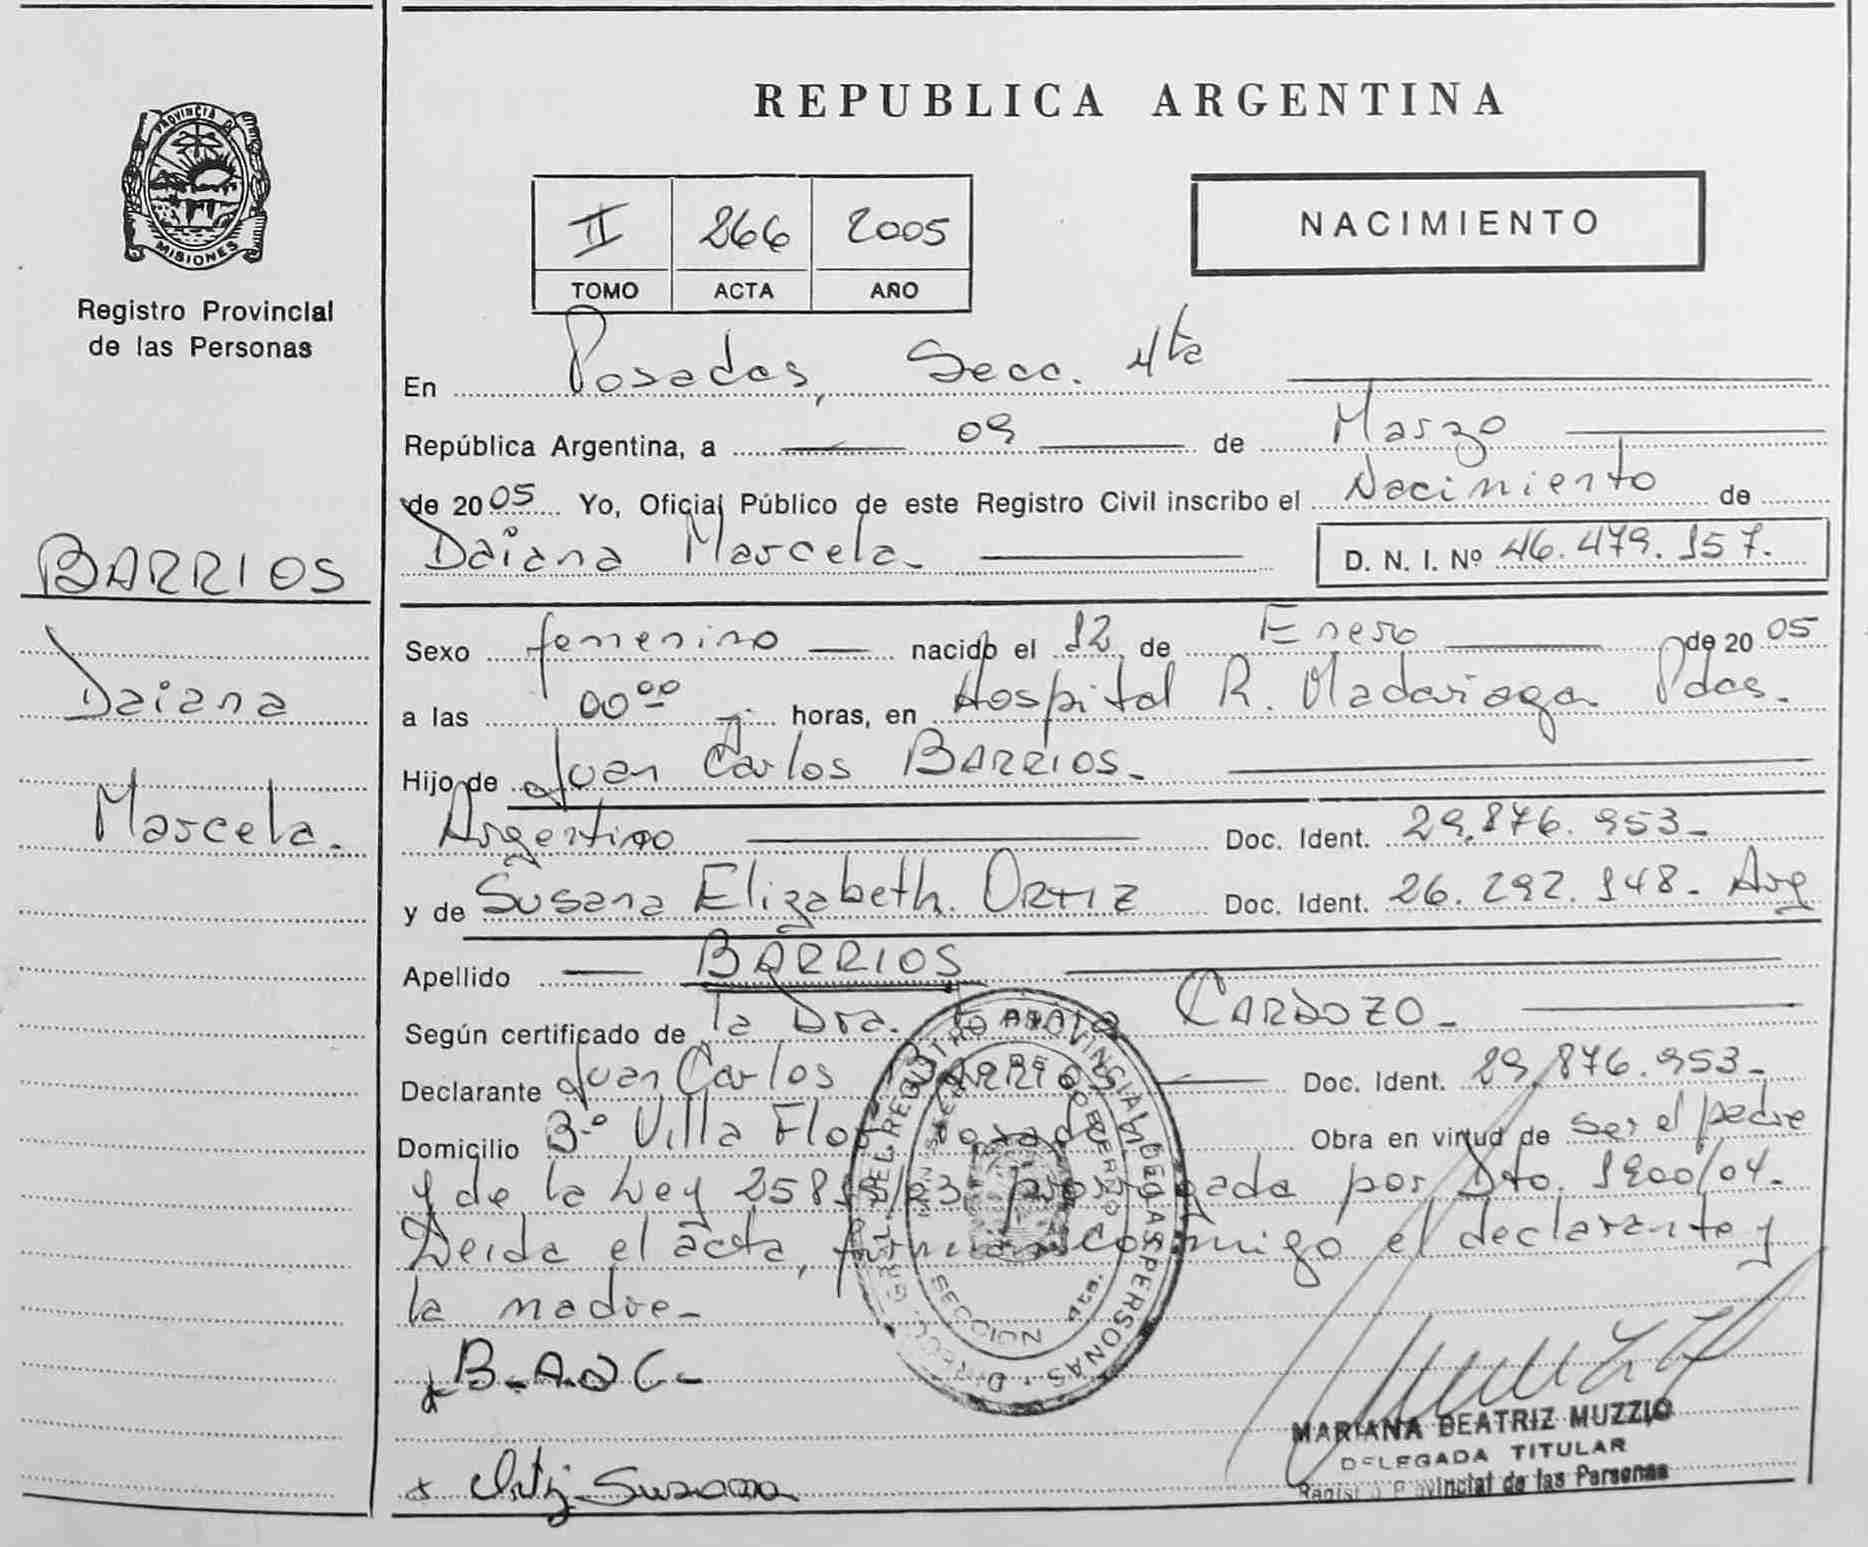 REPUBLICA ARGENTINA
PROVINCIA DE
MISIONES
Registro Provincial
de las Personas
II 266 2005
TOMO ACTA AÑO
NACIMIENTO
BARRIOS
Daiana
Marcela.
En Posadas, Secc. 4ta
República Argentina, a 09 de Marzo
de 2005 Yo, Oficial Público de este Registro Civil inscribo el Nacimiento de
Daiana Marcela. D. N. I. Nº 46.479.157.
Sexo femenino nacido el 12 de Enero de 2005
a las 00:00 horas, en Hospital R. Madariaga Pdas.
Hijo de Juan Carlos BARRIOS.
Argentino Doc. Ident. 29.876.953-
y de Susana Elizabeth ORTIZ Doc. Ident. 26.292.148- Arg
Apellido BARRIOS
Según certificado de la Dra. CARDOZO-
Declarante Juan Carlos BARRIOS Doc. Ident. 29.876.953-
Domicilio Bº Villa Flor Posadas Obra en virtud de ser el padre
y de la Ley prorrogada por Dto. 1900/04.
Leida el acta, firman conmigo el declarante y
la madre-
B.A.J.C-
Ortiz Susana
DEL REGISTRO PROVINCIAL DE LAS PERSONAS
SECCION 4ta.
MARIANA BEATRIZ MUZZIO
DELEGADA TITULAR
Registro Provincial de las Personas